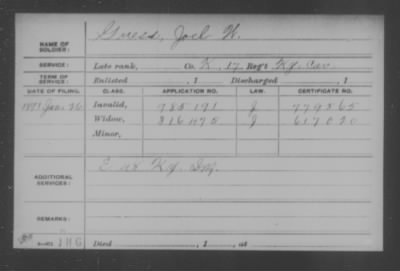 NAME OF SOLDIER: Guess, Joel W.
SERVICE: Late rank, Co. K, 17 Reg't Ky. Cav
TERM OF SERVICE: Enlisted , 1 Discharged , 1
DATE OF FILING. CLASS. APPLICATION NO. LAW. CERTIFICATE NO.
1891 Jan. 26 Invalid, 785191 J 779865
Widow, 816075 J 617020
Minor,
ADDITIONAL SERVICES: E 48 Ky. Inf.
REMARKS:
Died , 1 , at